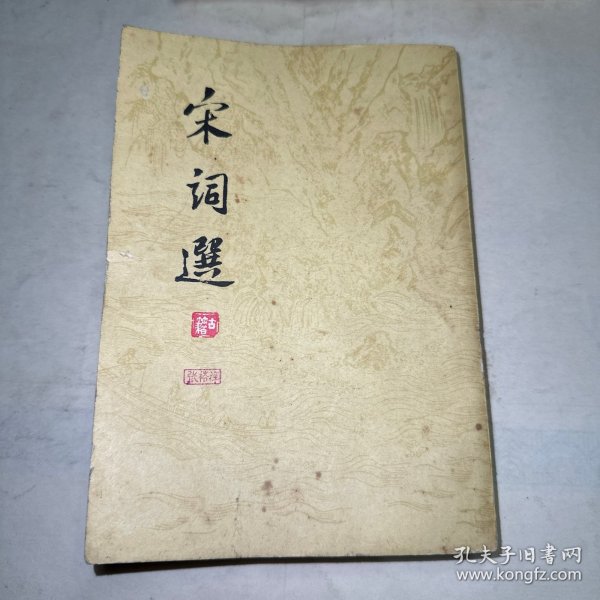 宋词選
古籍
孔夫子旧書网
www.kongfz.com